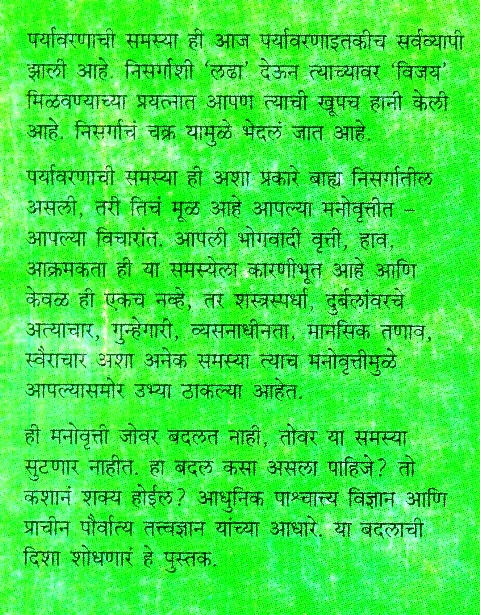 पर्यावरणाची समस्या ही आज पर्यावरणाइतकीच सर्वव्यापी
झाली आहे. निसर्गाशी ‘लढा’ देऊन त्याच्यावर ‘विजय’
मिळवण्याच्या प्रयत्नात आपण त्याची खूपच हानी केली
आहे. निसर्गाचं चक्र यामुळे भेदलं जात आहे.
पर्यावरणाची समस्या ही अशा प्रकारे बाह्य निसर्गातील
असली, तरी तिचं मूळ आहे आपल्या मनोवृत्तीत –
आपल्या विचारांत. आपली भोगवादी वृत्ती, हाव,
आक्रमकता ही या समस्येला कारणीभूत आहे आणि
केवळ ही एकच नव्हे, तर शस्त्रस्पर्धा, दुर्बलांवरचे
अत्याचार, गुन्हेगारी, व्यसनाधीनता, मानसिक तणाव,
स्वैराचार अशा अनेक समस्या त्याच मनोवृत्तीमुळे
आपल्यासमोर उभ्या ठाकल्या आहेत.
ही मनोवृत्ती जोवर बदलत नाही, तोवर या समस्या
सुटणार नाहीत. हा बदल कसा असला पाहिजे? तो
कशानं शक्य होईल? आधुनिक पाश्चात्त्य विज्ञान आणि
प्राचीन पौर्वात्य तत्त्वज्ञान यांच्या आधारे. या बदलाची
दिशा शोधणारं हे पुस्तक.